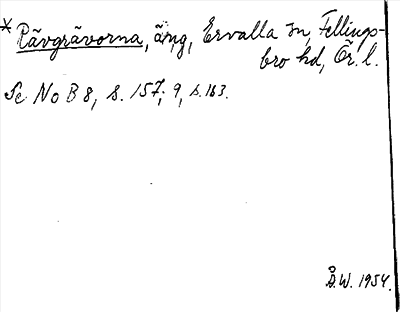 * Rävgrävorna, äng, Ervalla sn, Fellings-
bro hd, Ör. l.
Se No B 8, s. 157; 9, s. 163.
Å.W. 1954.